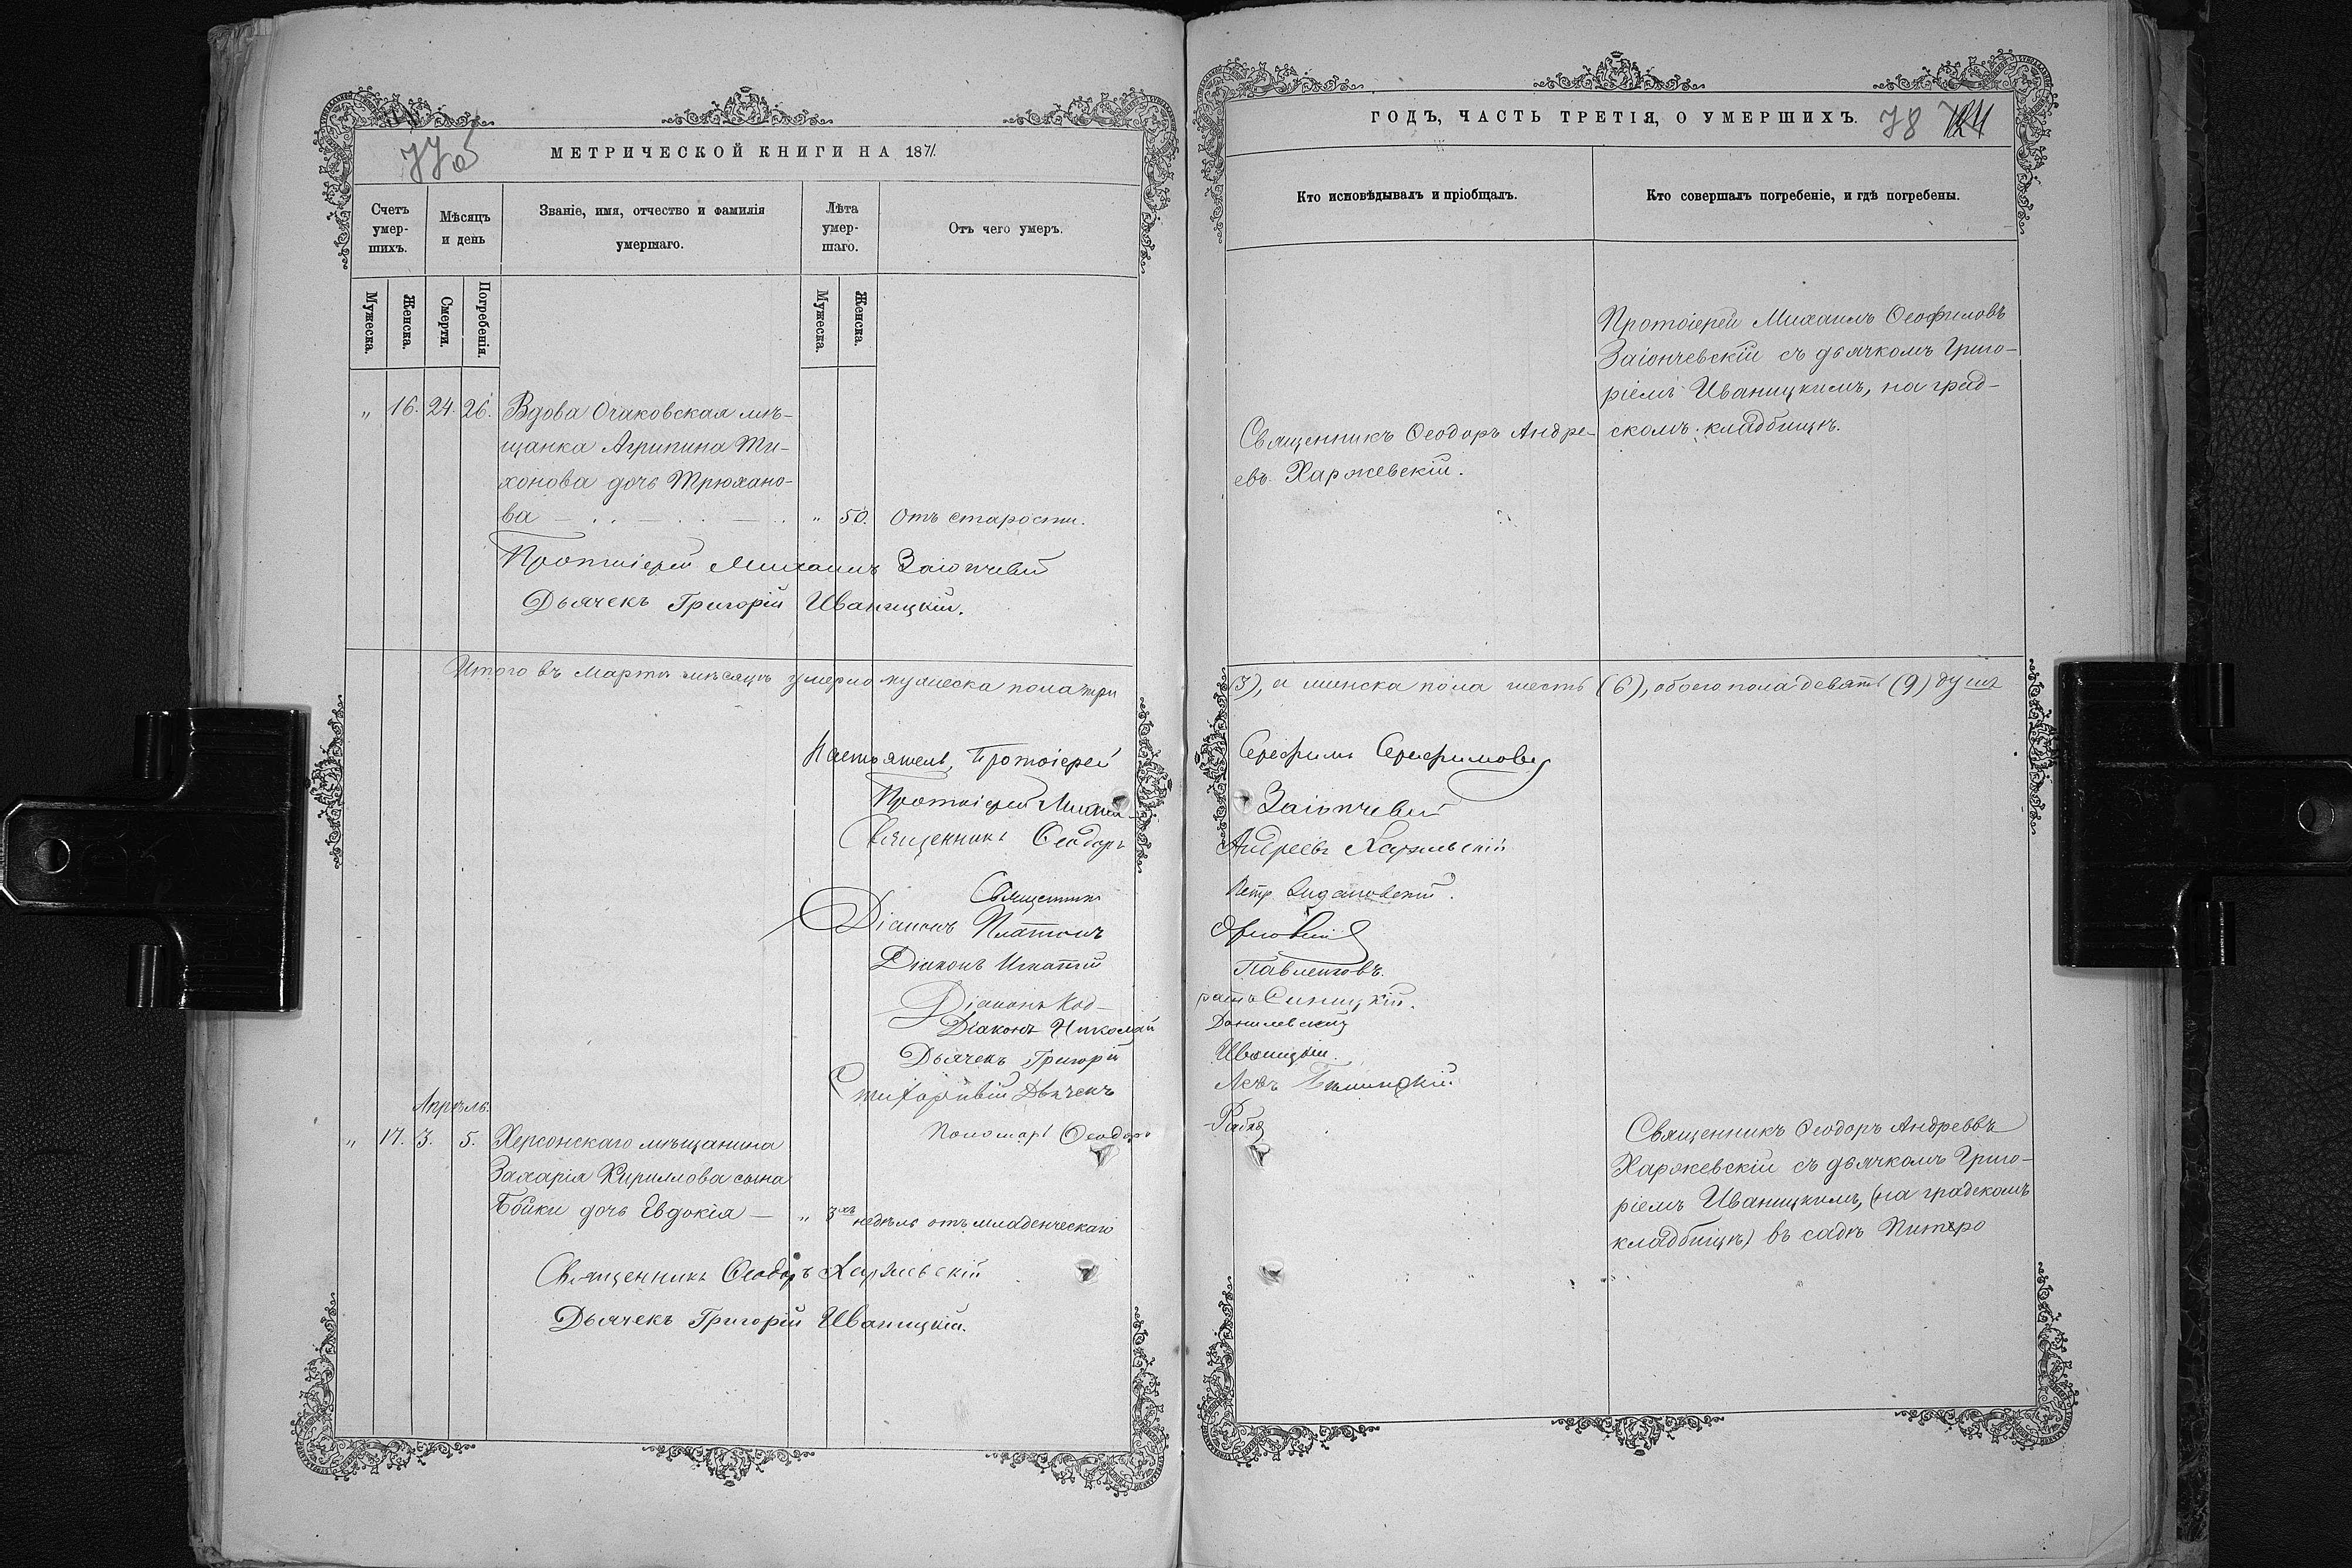 77об
МЕТРИЧЕСКОЙ КНИГИ НА 1871.
Счетъ умер-шихъ.
Мѣсяцъ и день
Званіе, имя, отчество и фамилія умершаго.
Лѣта умер-шаго.
Отъ чего умеръ.
Мужеска.
Женска.
Смерти.
Погребенія.
Мужеска.
Женска.
„ 16. 24. 26. Вдова Очаковская мѣ-
щанка Агрипина Ти-
хонова дочь Трюхано-
ва — „ 50. Отъ старости.
Протоіерей Михаилъ Заіончевскій
Дьячекъ Григорій Иваницкій.
Итого въ Мартѣ мѣсяцѣ умерло мужеска пола три
Настоятель, Протоіерей
Протоіерей Михаилъ
Священникъ Ѳеодоръ
Священникъ
Діаконъ Платонъ
Діаконъ Игнатій
Діаконъ Код-
Діаконъ Николай
Дьячекъ Григорій
Стихарный Дьячекъ
Пономарь Ѳеодоръ
Апрѣль.
„ 17. 3. 5. Херсонскаго мѣщанина
Захарія Кириллова сына
Бойки дочь Евдокія — „ 3хъ недѣль отъ младенческаго
Священникъ Ѳеодоръ Харжевскій
Дьячекъ Григорій Иваницкій.
ГОДЪ, ЧАСТЬ ТРЕТІЯ, О УМЕРШИХЪ.
78
Кто исповѣдывалъ и пріобщалъ.
Кто совершалъ погребеніе, и гдѣ погребены.
Священникъ Ѳеодоръ Андре-
евъ Харжевскій.
Протоіерей Михаилъ Ѳеофиловъ
Заіончевскій съ дьячкомъ Григо-
ріемъ Иваницкимъ, на град-
скомъ кладбищѣ.
(3), а женска пола шесть (6), обоего пола девять (9) душъ
Серафимъ Серафимовъ
Заіончевскій
Андреевъ Харжевскій
Петръ
Павленковъ.
ратъ Синицкій.
Данилевскій
Иваницкій.
Левъ
Священникъ Ѳеодоръ Андреевъ
Харжевскій съ дьячкомъ Григо-
ріемъ Иваницкимъ, (на градскомъ
кладбищѣ) въ садѣ Питеро